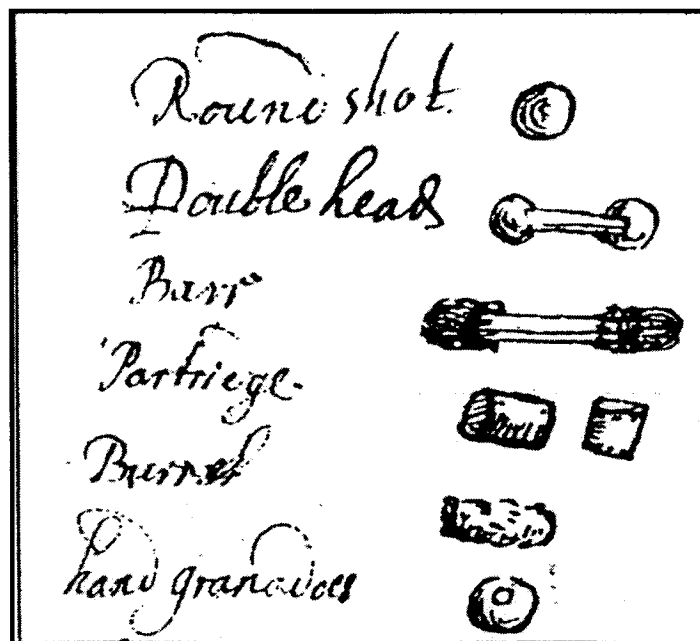 Round shot.
Double heads
Barr
Partriege.
Burrel
hand granadoes